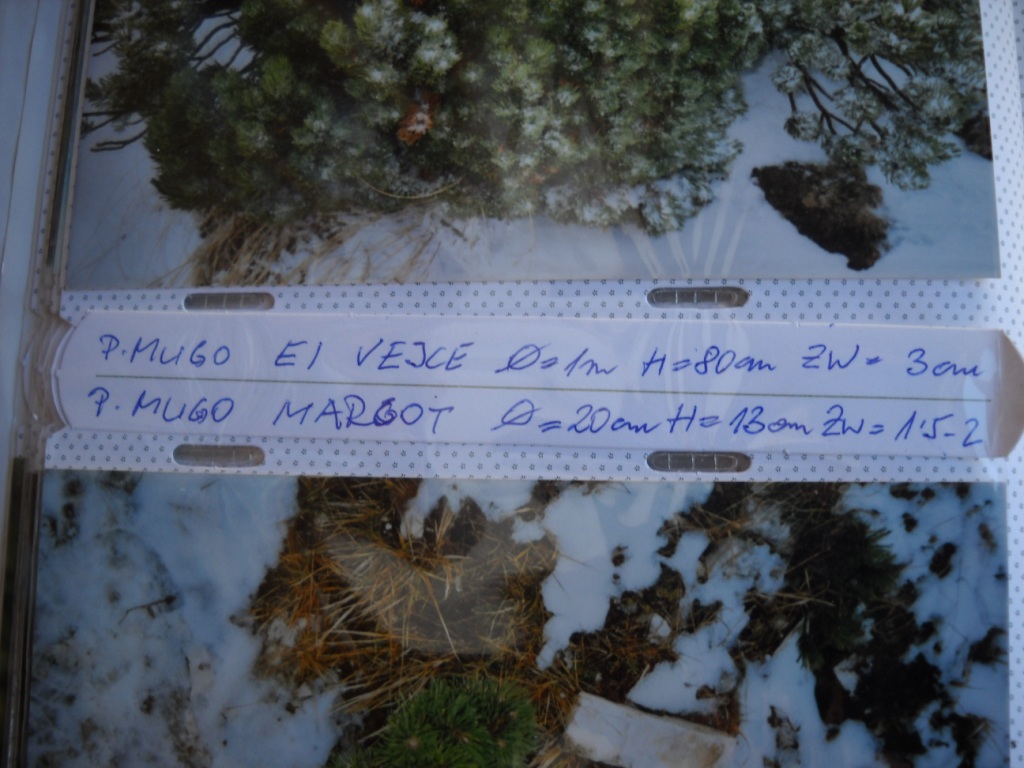 P. MUGO EI VEJCE Ø=1m H=80cm ZW= 3cm
P. MUGO MARGOT Ø=20cm H=13cm ZW= 1'5-2